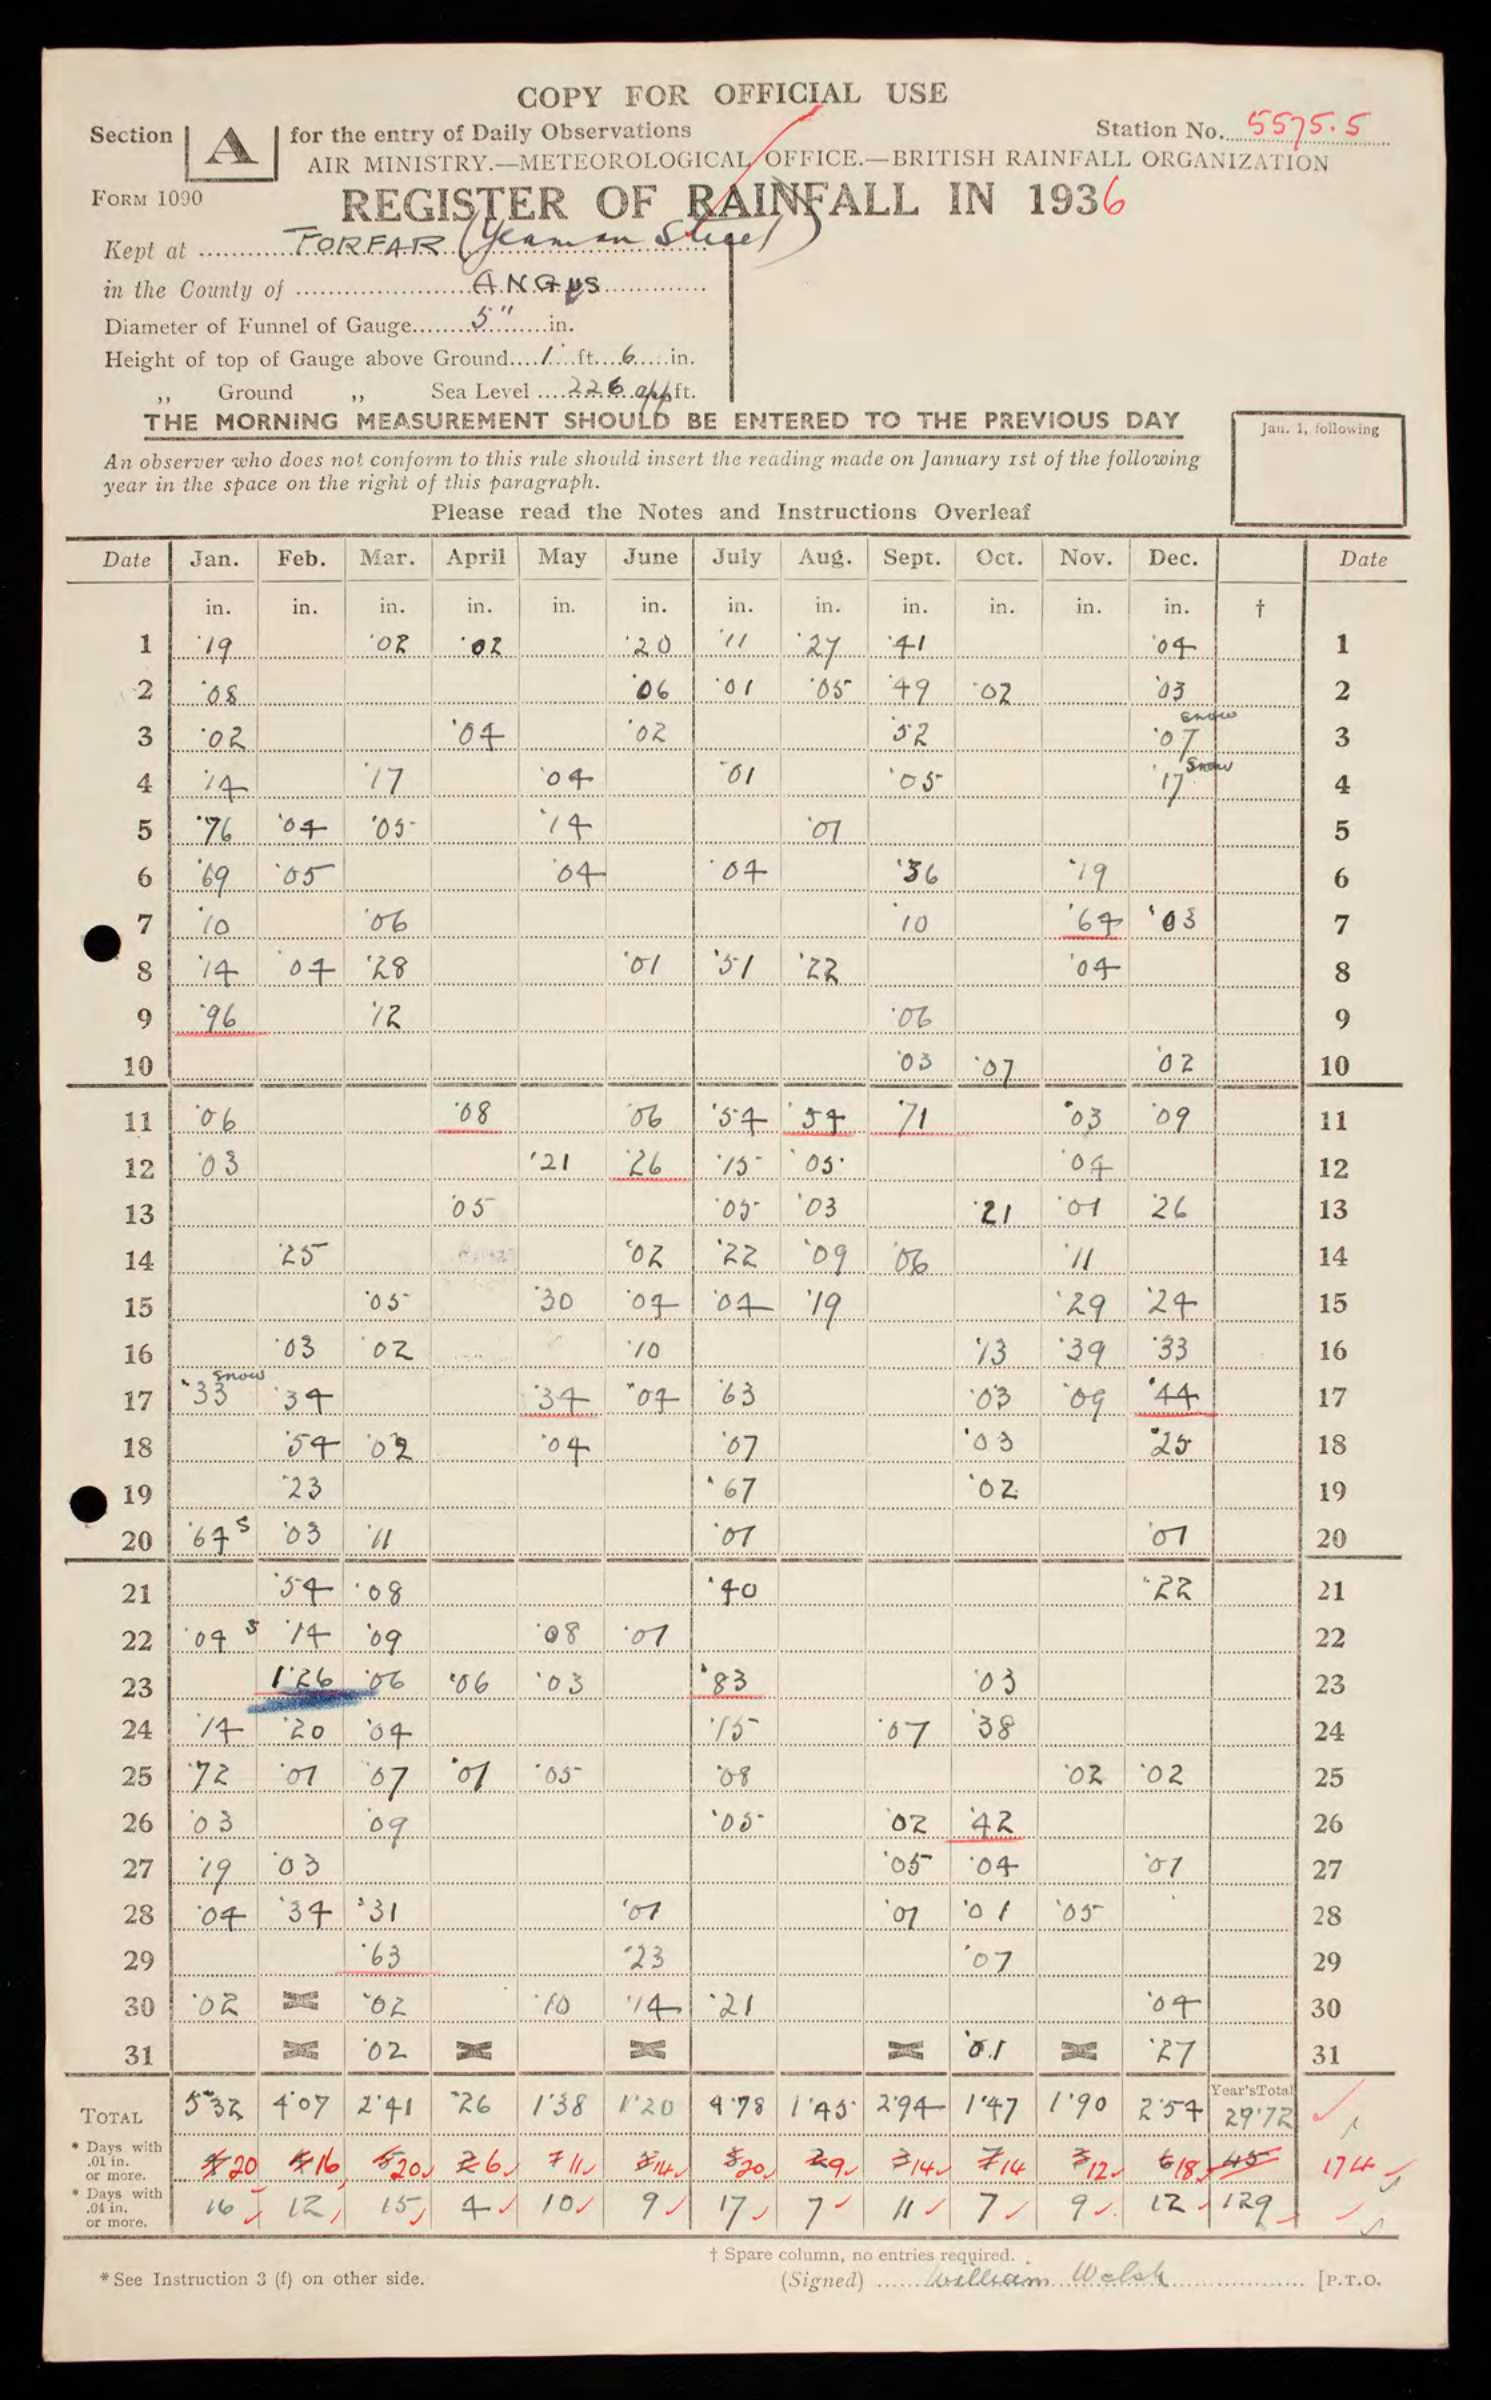 COPY FOR OFFICIAL USE
Section A for the entry of Daily Observations Station No. 5575.5
AIR MINISTRY.—METEOROLOGICAL OFFICE.—BRITISH RAINFALL ORGANIZATION
FORM 1090
REGISTER OF RAINFALL IN 1936
Kept at FORFAR (Yeaman Street)
in the County of ANGUS
Diameter of Funnel of Gauge 5" in.
Height of top of Gauge above Ground 1 ft. 6 in.
,, Ground ,, Sea Level 226 app ft.
THE MORNING MEASUREMENT SHOULD BE ENTERED TO THE PREVIOUS DAY
Jan. 1, following
An observer who does not conform to this rule should insert the reading made on January 1st of the following
year in the space on the right of this paragraph.
Please read the Notes and Instructions Overleaf
Date Jan. Feb. Mar. April May June July Aug. Sept. Oct. Nov. Dec. Date
in. in. in. in. in. in. in. in. in. in. in. in. †
1 ·19 ·02 ·02 ·20 ·11 ·27 ·41 ·04 1
2 ·08 ·06 ·01 ·05 ·49 ·02 ·03 2
3 ·02 ·04 ·02 ·52 ·07 snow 3
4 ·14 ·17 ·04 ·01 ·05 ·17 snow 4
5 ·76 ·04 ·05 ·14 ·01 5
6 ·69 ·05 ·04 ·04 ·36 ·19 6
7 ·10 ·06 ·10 ·64 ·03 7
8 ·14 ·04 ·28 ·01 ·51 ·22 ·04 8
9 ·96 ·12 ·06 9
10 ·03 ·07 ·02 10
11 ·06 ·08 ·06 ·54 ·54 ·71 ·03 ·09 11
12 ·03 ·21 ·26 ·15 ·05 ·04 12
13 ·05 ·05 ·03 ·21 ·01 ·26 13
14 ·25 ·02 ·22 ·09 ·06 ·11 14
15 ·05 ·30 ·04 ·04 ·19 ·29 ·24 15
16 ·03 ·02 ·10 ·13 ·39 ·33 16
17 ·33 snow ·34 ·34 ·04 ·63 ·03 ·09 ·44 17
18 ·54 ·02 ·04 ·07 ·03 ·25 18
19 ·23 ·67 ·02 19
20 ·64 S ·03 ·11 ·01 ·01 20
21 ·54 ·08 ·40 ·22 21
22 ·04 S ·14 ·09 ·08 ·01 22
23 1·26 ·06 ·06 ·03 ·83 ·03 23
24 ·14 ·20 ·04 ·15 ·07 ·38 24
25 ·72 ·01 ·07 ·01 ·05 ·08 ·02 ·02 25
26 ·03 ·09 ·05 ·02 ·42 26
27 ·19 ·03 ·05 ·04 ·01 27
28 ·04 ·34 ·31 ·01 ·01 ·01 ·05 28
29 ·63 ·23 ·07 29
30 ·02 ·02 ·10 ·14 ·21 ·04 30
31 ·02 ·01 ·27 31
Year's Total
TOTAL 5·32 4·07 2·41 ·26 1·38 1·20 4·78 1·45 2·94 1·47 1·90 2·54 29·72
* Days with .01 in. or more. 20 16 20 6 11 14 20 9 14 14 12 18 174
* Days with .04 in. or more. 16 12 15 4 10 9 17 7 11 7 9 12 129
† Spare column, no entries required.
* See Instruction 3 (f) on other side. (Signed) William Welsh [P.T.O.